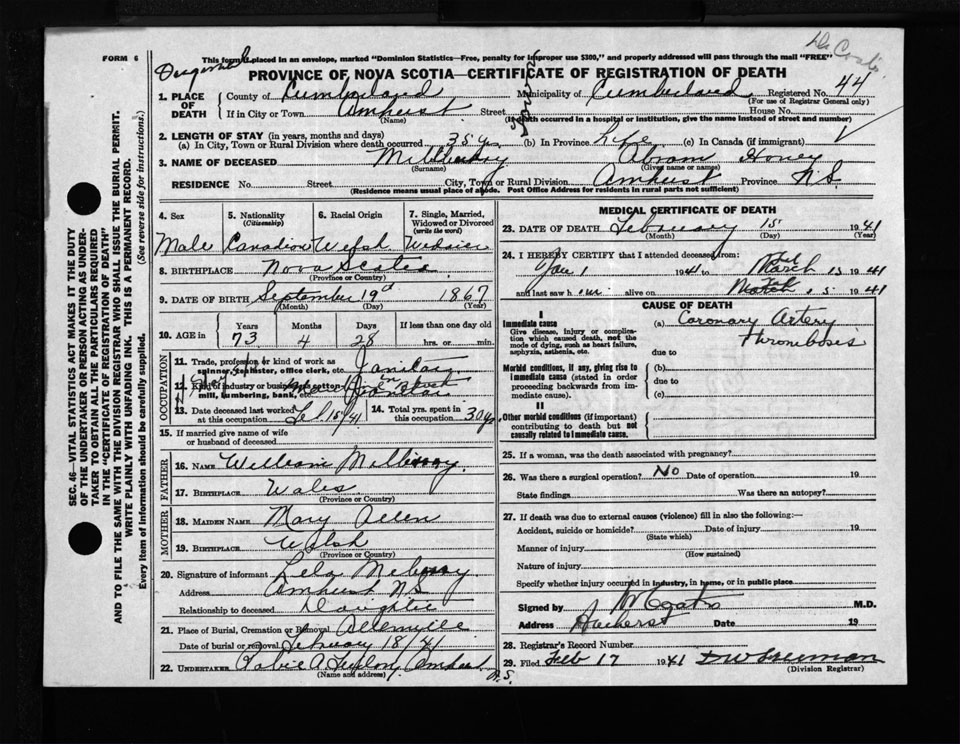 FORM 6
This form if placed in an envelope, marked "Dominion Statistics—Free, penalty for improper use $300," and properly addressed will pass through the mail "FREE"
PROVINCE OF NOVA SCOTIA—CERTIFICATE OF REGISTRATION OF DEATH
1. PLACE OF DEATH
County of Cumberland Municipality of Cumberland Registered No. 44
(For use of Registrar General only)
If in City or Town Amherst Street House No.
(Name) (If death occurred in a hospital or institution, give the name instead of street and number)
2. LENGTH OF STAY (in years, months and days)
(a) In City, Town or Rural Division where death occurred 35 yrs (b) In Province Life (c) In Canada (if immigrant)
3. NAME OF DECEASED Abram Honey
(Surname) (Given name or names)
RESIDENCE No. Street City, Town or Rural Division Amherst Province N.S.
(Residence means usual place of abode. Post Office Address for residents in rural parts not sufficient)
4. Sex Male
5. Nationality (Citizenship) Canadian
6. Racial Origin Welsh
7. Single, Married, Widowed or Divorced (write the word)
8. BIRTHPLACE Nova Scotia
(Province or Country)
9. DATE OF BIRTH September 19 1867
(Month) (Day) (Year)
10. AGE in Years Months Days If less than one day old
73 4 28 hrs. or min.
OCCUPATION
11. Trade, profession or kind of work as spinner, teamster, office clerk, etc. Janitor
12. Kind of industry or business as cotton mill, lumbering, bank, etc.
13. Date deceased last worked at this occupation Feb 15/41
14. Total yrs. spent in this occupation 30 yrs
15. If married give name of wife or husband of deceased
FATHER
16. NAME William
17. BIRTHPLACE Wales
(Province or Country)
MOTHER
18. MAIDEN NAME Mary Allen
19. BIRTHPLACE Welsh
(Province or Country)
20. Signature of informant Lela
Address Amherst N.S.
Relationship to deceased Daughter
21. Place of Burial, Cremation or Removal
Date of burial or removal February 18/41
22. UNDERTAKER Amherst N.S.
(Name and address)
MEDICAL CERTIFICATE OF DEATH
23. DATE OF DEATH February 15 1941
(Month) (Day) (Year)
24. I HEREBY CERTIFY that I attended deceased from:
Jan 1 1941 to March 15 1941
and last saw him alive on March 15 1941
CAUSE OF DEATH
I
Immediate cause
Give disease, injury or complication which caused death, not the mode of dying, such as heart failure, asphyxia, asthenia, etc.
(a) Coronary Artery
Thrombosis
due to
Morbid conditions, if any, giving rise to immediate cause (stated in order proceeding backwards from immediate cause).
(b)
due to
(c)
II
Other morbid conditions (if important) contributing to death but not causally related to immediate cause.
25. If a woman, was the death associated with pregnancy?
26. Was there a surgical operation? No Date of operation 19
State findings Was there an autopsy?
27. If death was due to external causes (violence) fill in also the following:—
Accident, suicide or homicide? Date of injury 19
(State which)
Manner of injury
(How sustained)
Nature of injury
Specify whether injury occurred in industry, in home, or in public place
Signed by M.D.
Address Amherst Date 19
28. Registrar's Record Number
29. Filed Feb 17 1941
(Division Registrar)
SEC. 46—VITAL STATISTICS ACT MAKES IT THE DUTY
OF THE UNDERTAKER OR PERSON ACTING AS UNDER-
TAKER TO OBTAIN ALL THE PARTICULARS REQUIRED
IN THE "CERTIFICATE OF REGISTRATION OF DEATH"
AND TO FILE THE SAME WITH THE DIVISION REGISTRAR WHO SHALL ISSUE THE BURIAL PERMIT.
WRITE PLAINLY WITH UNFADING INK. THIS IS A PERMANENT RECORD.
Every item of information should be carefully supplied. (See reverse side for instructions.)